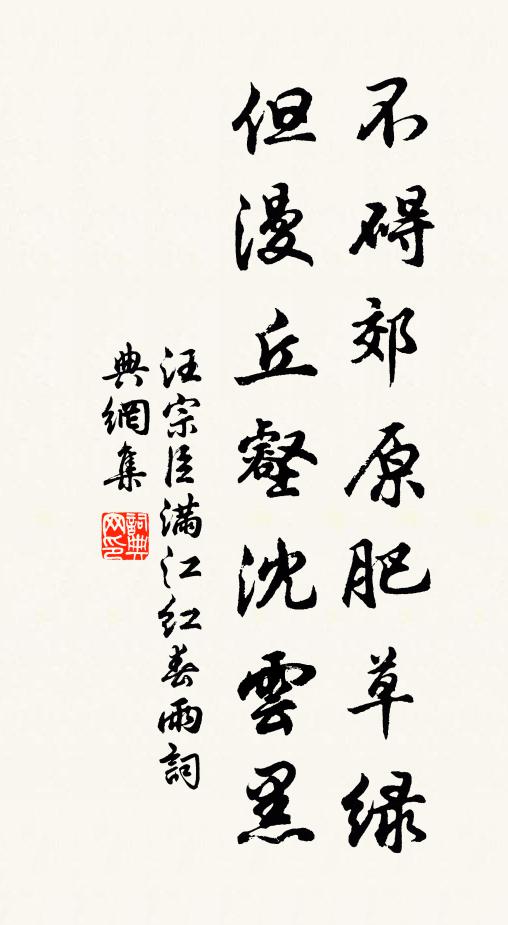 不碍郊原肥草绿
但漫丘壑沈雲黑
汪宗臣满江红春雨詞
典網集
詞典網印